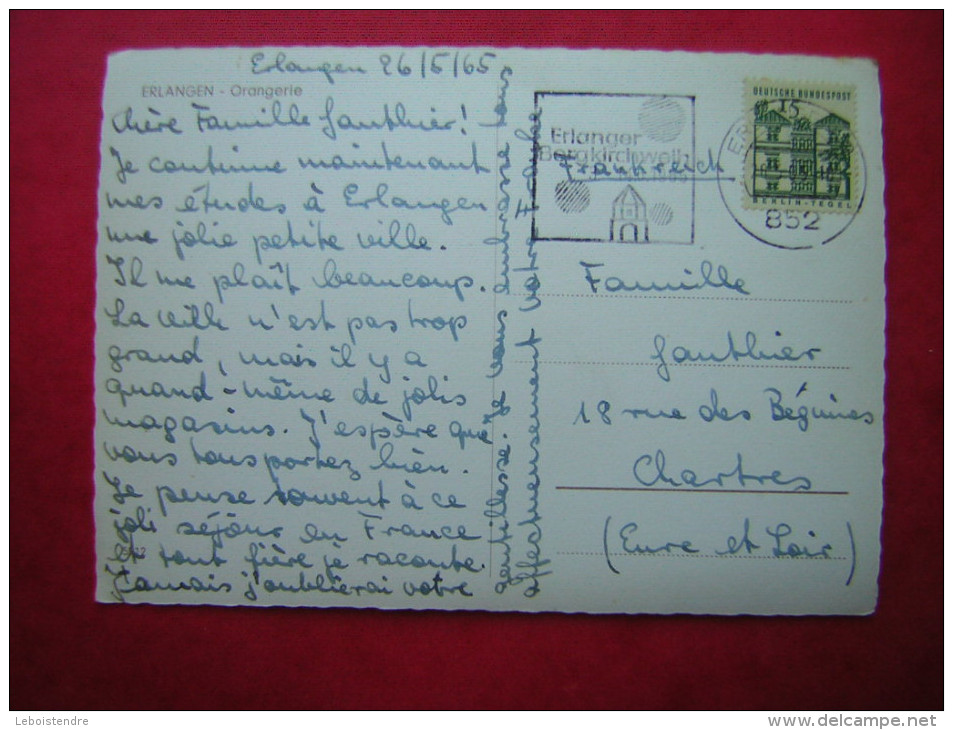 Erlangen 26/5/65
ERLANGEN - Orangerie
Chère Famille Gauthier!
Je continue maintenant
mes études à Erlangen
une jolie petite ville.
Il me plaît beaucoup.
La ville n'est pas trop
grand, mais il y a
quand-même de jolis
magasins. J'espère que
vous tous portez bien.
Je pense souvent à ce
joli séjour en France
et tout fière je raconte.
Jamais j'oublierai votre
gentillesse. Je vous embrasse tous
affectueusement votre
DEUTSCHE BUNDESPOST
15
BERLIN-TEGEL
Erlanger
Bergkirchweih
852
Frankreich
Famille
Gauthier
18 rue des Béguines
Chartres
(Eure et Loir)
Leboistendre
delcampe.net